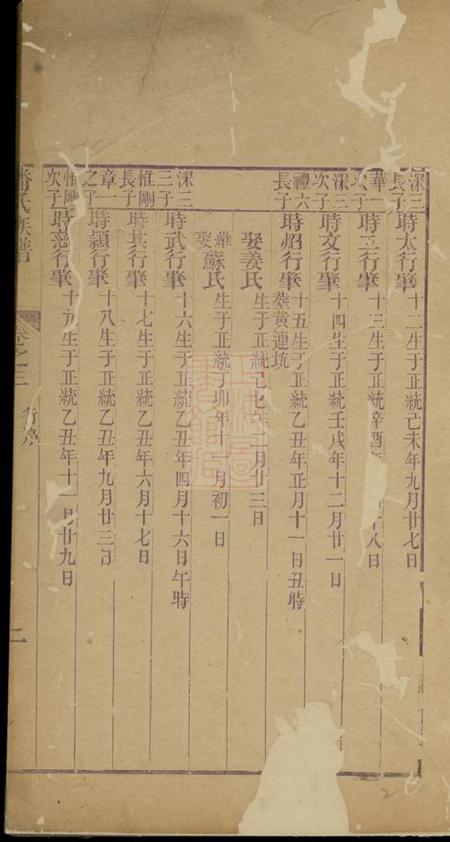 深三長子時太行肇十二生于正統己未年九月廿七日
華一次子時立行肇十三生于正統辛酉年 十八日
深三次子時文行肇十四生于正統壬戌年十二月廿一日
禮六長子時炤行肇十五生于正統乙丑年正月十一日丑時
葬黄連坑
娶姜氏生于正統己巳年二月廿三日
繼娶蘇氏生于正統丁卯年十一月初一日
深三三子時武行肇十六生于正統乙丑年四月十六日午時
惟剛長子時其行肇十七生于正統乙丑年六月十七日
章一之子時顥行肇十八生于正統乙丑年九月廿三日
惟剛次子時慈行肇十九生于正統乙丑年十一月廿九日
潘氏族譜 卷之三 行序 二